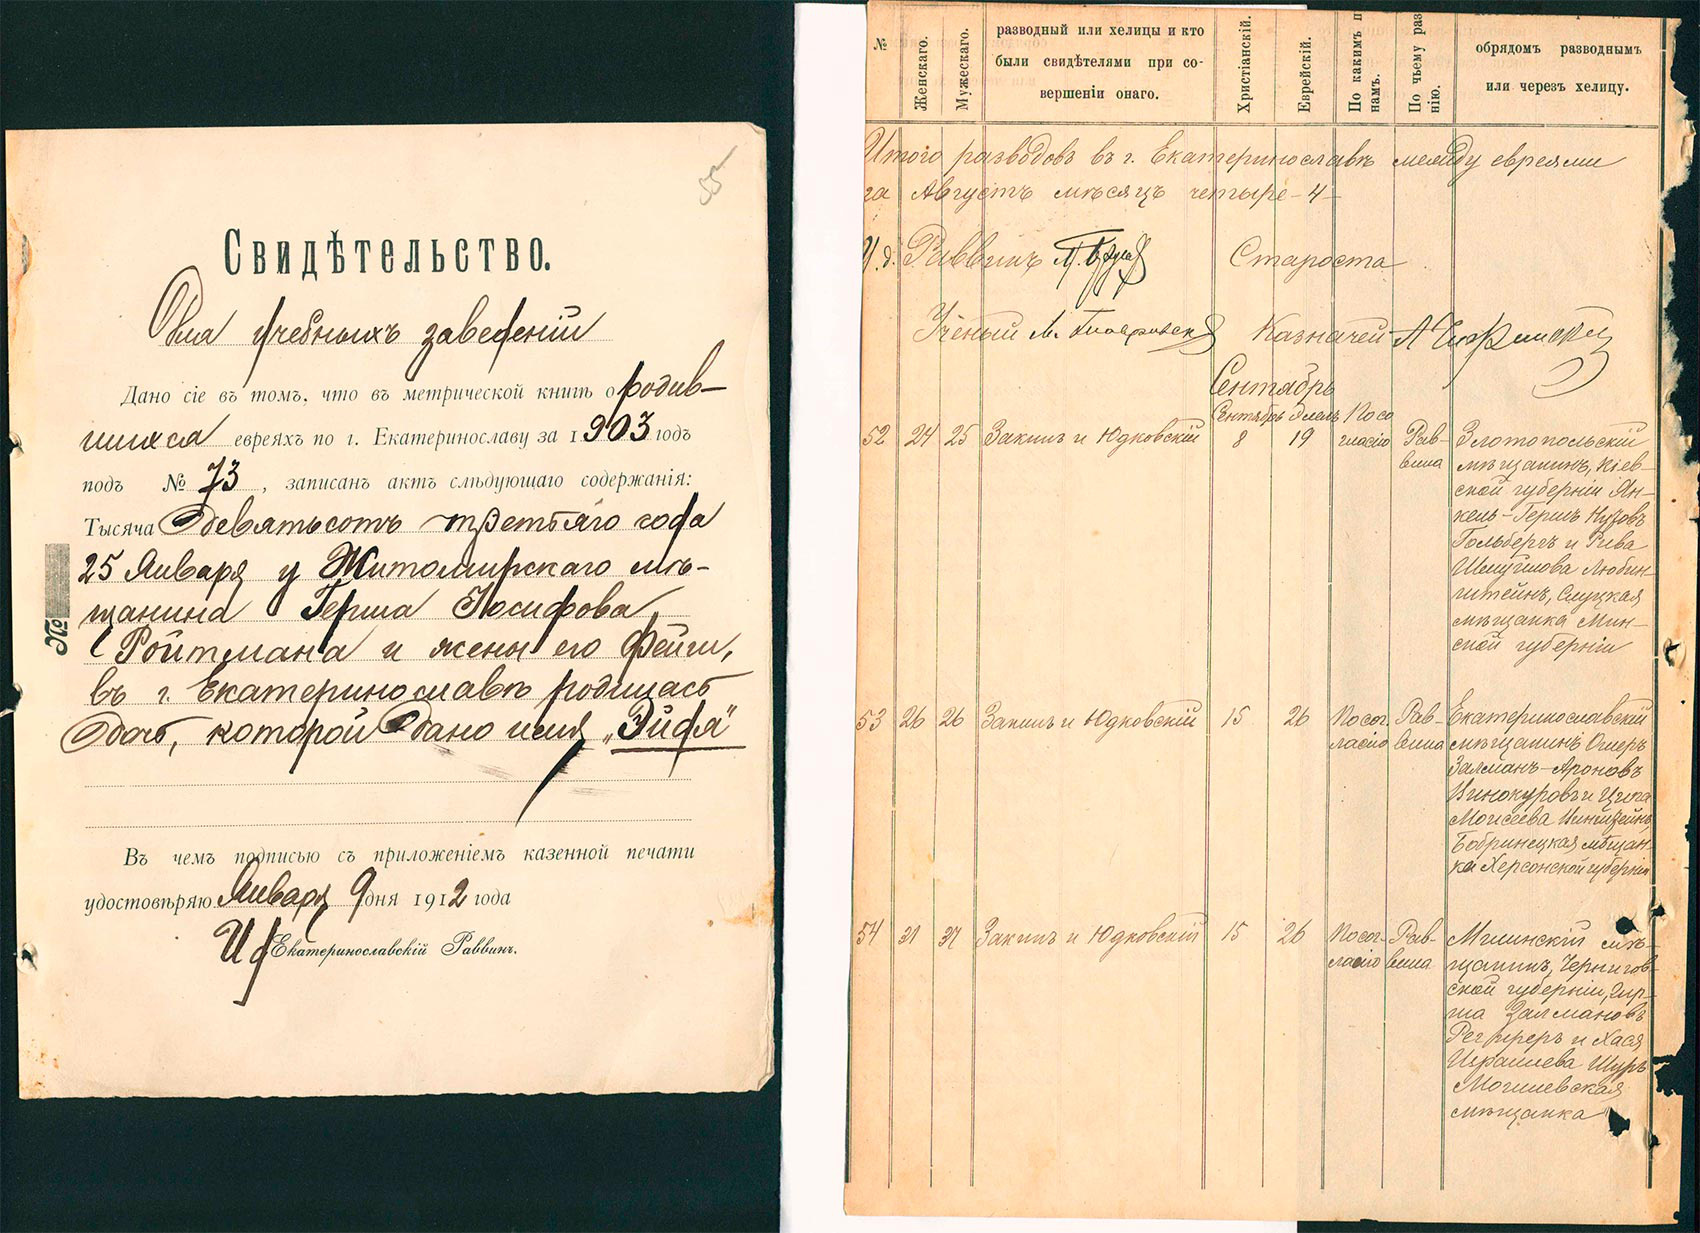 55
Свидѣтельство.
Для учебныхъ заведеній
Дано сіе въ томъ, что въ метрической книгѣ о родив-
шихся евреяхъ по г. Екатеринославу за 1903 годъ
подъ № 73, записанъ актъ слѣдующаго содержанія:
Тысяча Девятьсотъ третьяго года
25 Января у Житомирскаго мѣ-
щанина Герша Іосифова
Ройтмана и жены его Фейги,
въ г. Екатеринославѣ родилась
дочь, которой дано имя „Зйфя"
№
Въ чемъ подписью съ приложеніемъ казенной печати
удостовѣряю Января 9 дня 1912 года
И д Екатеринославскій Раввинъ.
№
Женскаго.
Мужескаго.
разводный или хелицы и кто
были свидѣтелями при со-
вершеніи онаго.
Христіанскій.
Еврейскій.
По какимъ п
намъ.
По чьему раз
нію.
обрядомъ разводнымъ
или черезъ хелицу.
Итого разводовъ въ г. Екатеринославѣ между евреями
за Августъ мѣсяцъ четыре-4-
И.д. Раввинъ Староста
Ученый Казначей
Сентябрь
Сентябрь Элелъ
52 24 25 Закинъ и Юдковскій 8 19 По со
гласію
Рав-
вина
Златопольскій
мѣщанинъ, Кіев-
ской губерніи Ян-
кель-Гершъ Нутовъ
Гольбергъ и Рива
Шмуилова Любин-
штейнъ, Слуцкая
мѣщанка Мин-
ской губерніи
53 26 26 Закинъ и Юдковскій 15 26 По сог-
ласію
Рав-
вина
Екатеринославскій
мѣщанинъ Ошеръ
Залманъ-Ароновъ
Винокуровъ и Ципа
Моисеева
Бобринецкая мѣщан-
ка Херсонской губерніи
54 31 31 Закинъ и Юдковскій 15 26 По сог-
ласію
Рав-
вина
Мглинскій мѣ-
щанинъ, Чернигов-
ской губерніи, Гир-
ша Залмановъ
и Хася
Израилева Шуръ
Могилевская
мѣщанка